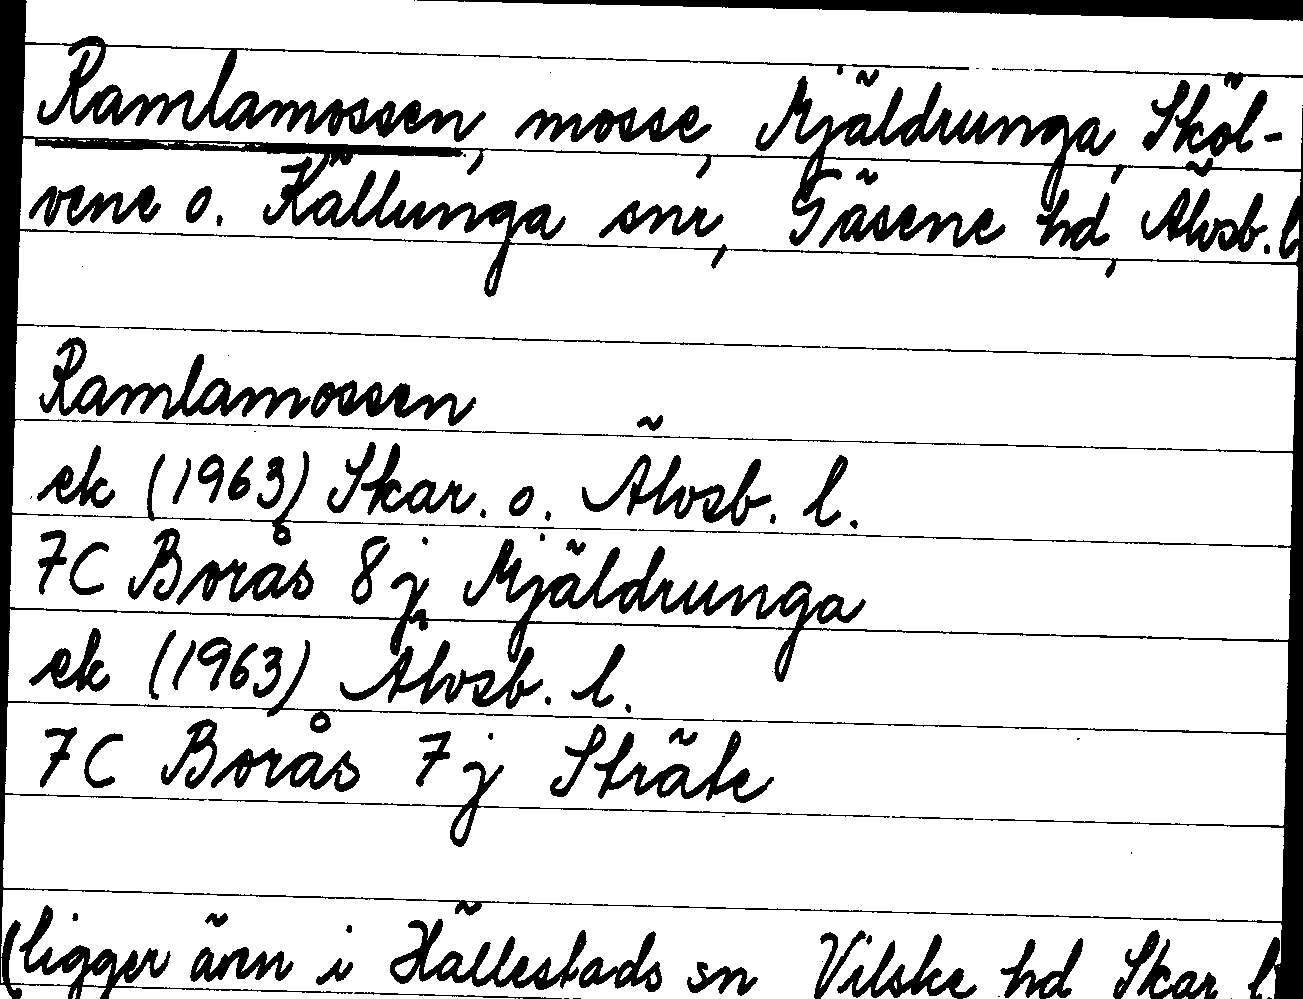 Ramlamossen, mosse, Mjäldrunga, Sköl-
vene o. Källunga snr, Gäsene hd, Älvsb. l.
Ramlamossen
ek (1963) Skar. o. Älvsb. l.
7C Borås 8j Mjäldrunga
ek (1963) Älvsb. l.
7C Borås 7j Sträte
(ligger även i Hällestads sn Vilske hd Skar. l.